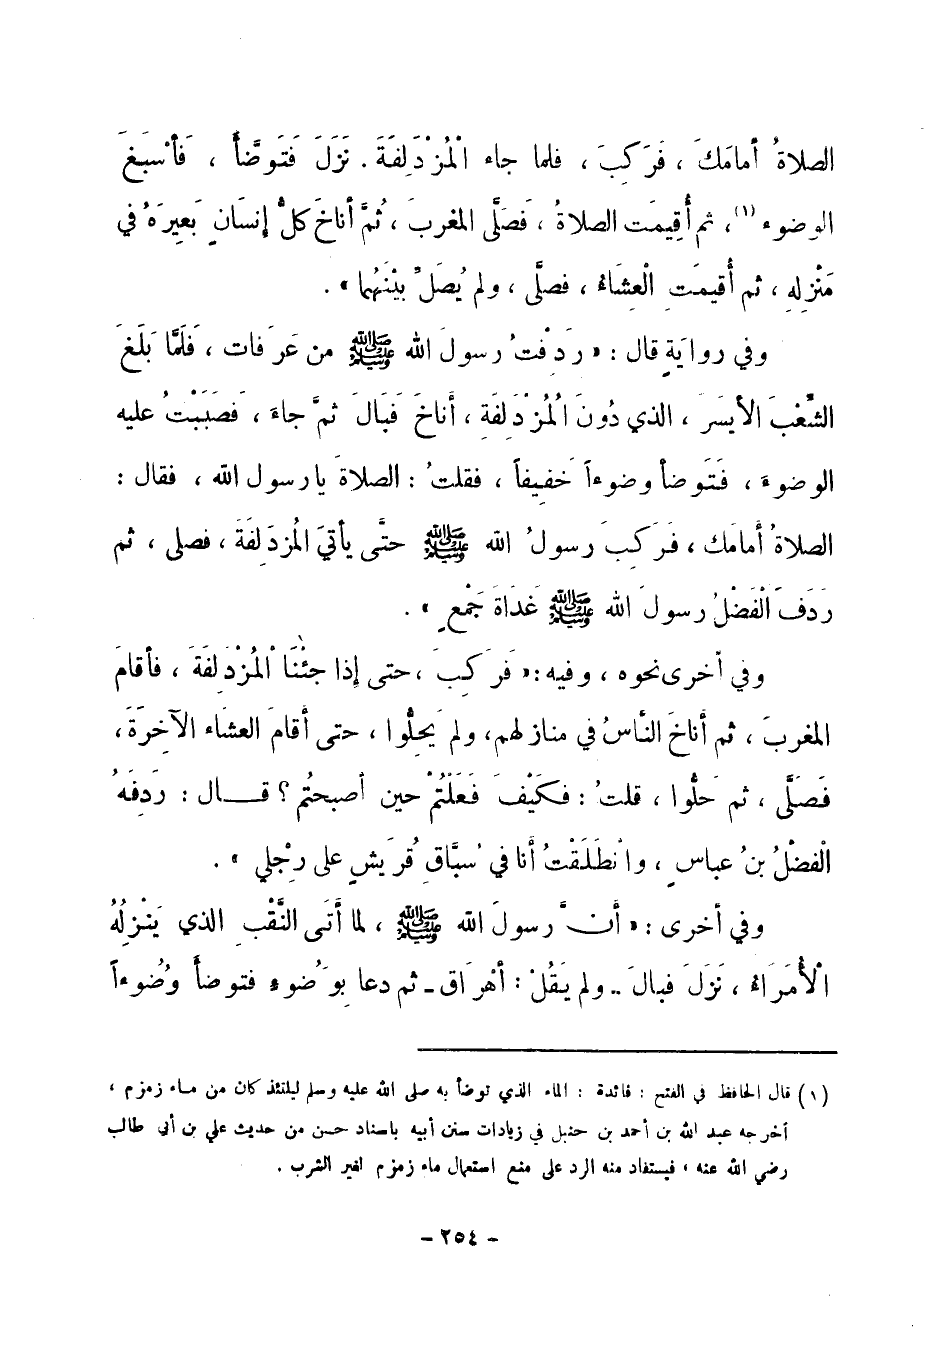 الصلاةُ أمامَكَ ، فَرَكِبَ ، فلما جاء الْمُزْدَلِفَةَ . نَزَلَ فَتَوضَّأَ ، فَأَسْبَغَ
الوضوءَ (١) ، ثم أُقِيمَت الصلاةُ ، فَصَلَّى المغربَ ، ثُمَّ أناخَ كلُّ إنسَانٍ بَعِيرَهُ في
مَنْزِلِهِ ، ثم أُقيمَتِ الْعِشَاءُ ، فصلَّى ، ولم يُصَلِّ بيْنَهُما » .
وفي روايَةٍ قال : « رَدِفْتُ رسولَ الله ﷺ من عَرَفات ، فَلَمَّا بَلَغَ
الشِّعْبَ الأيسَرَ ، الذي دُونَ الْمُزْدَلِفَةِ ، أناخَ فَبَالَ ثمَّ جاءَ ، فَصَبَبْتُ عليه
الوضوءَ ، فَتَوضأَ وضوءاً خفيفاً ، فقلتُ : الصلاةَ يا رسول الله ، فقال :
الصلاةُ أَمامَك ، فَركِبَ رسولُ الله ﷺ حتَّى يأتيَ المزدَلِفَةَ ، فصلى ، ثم
رَدَفَ الْفَضْلُ رسولَ الله ﷺ غَدَاةَ جَمْعٍ » .
وفي أخرى نحوه ، وفيه : « فَرَكِبَ ، حتى إذا جئْنَا الْمُزْدَلِفَةَ ، فأقامَ
المغربَ ، ثم أناخَ النَّاسُ في منازلهم، ولم يَحِلُّوا ، حتى أقامَ العشَاء الآخِرَةَ،
فَصَلَّى ، ثم حَلُّوا ، قلتُ : فكَيْفَ فَعَلْتُمْ حين أصبحتُم ؟ قـــال : رَدِفَهُ
الْفضْلُ بنُ عباسٍ ، وانْطَلَقْتُ أنا في سُبَّاقِ قُرَيشٍ على رِجْلي » .
وفي أخرى : « أنَّ رسولَ الله ﷺ ، لما أَتَى النَّقْبَ الذي يَنْزِلُهُ
الْأُمَرَاءُ ، نَزَلَ فبالَ ـ ولم يَقُلْ : أهْرَاق ـ ثم دعا بِوَضُوءٍ فتوضأَ وُضُوءاً
(١) قال الحافظ في الفتح : فائدة : الماء الذي توضأ به صلى الله عليه وسلم ليلتئذ كان من ماء زمزم ،
أخرجه عبد الله بن أحمد بن حنبل في زيادات سنن أبيه باسناد حسن من حديث علي بن أبي طالب
رضي الله عنه ، فيستفاد منه الرد على منع استعمال ماء زمزم لغير الشرب .
- ٢٥٤ -